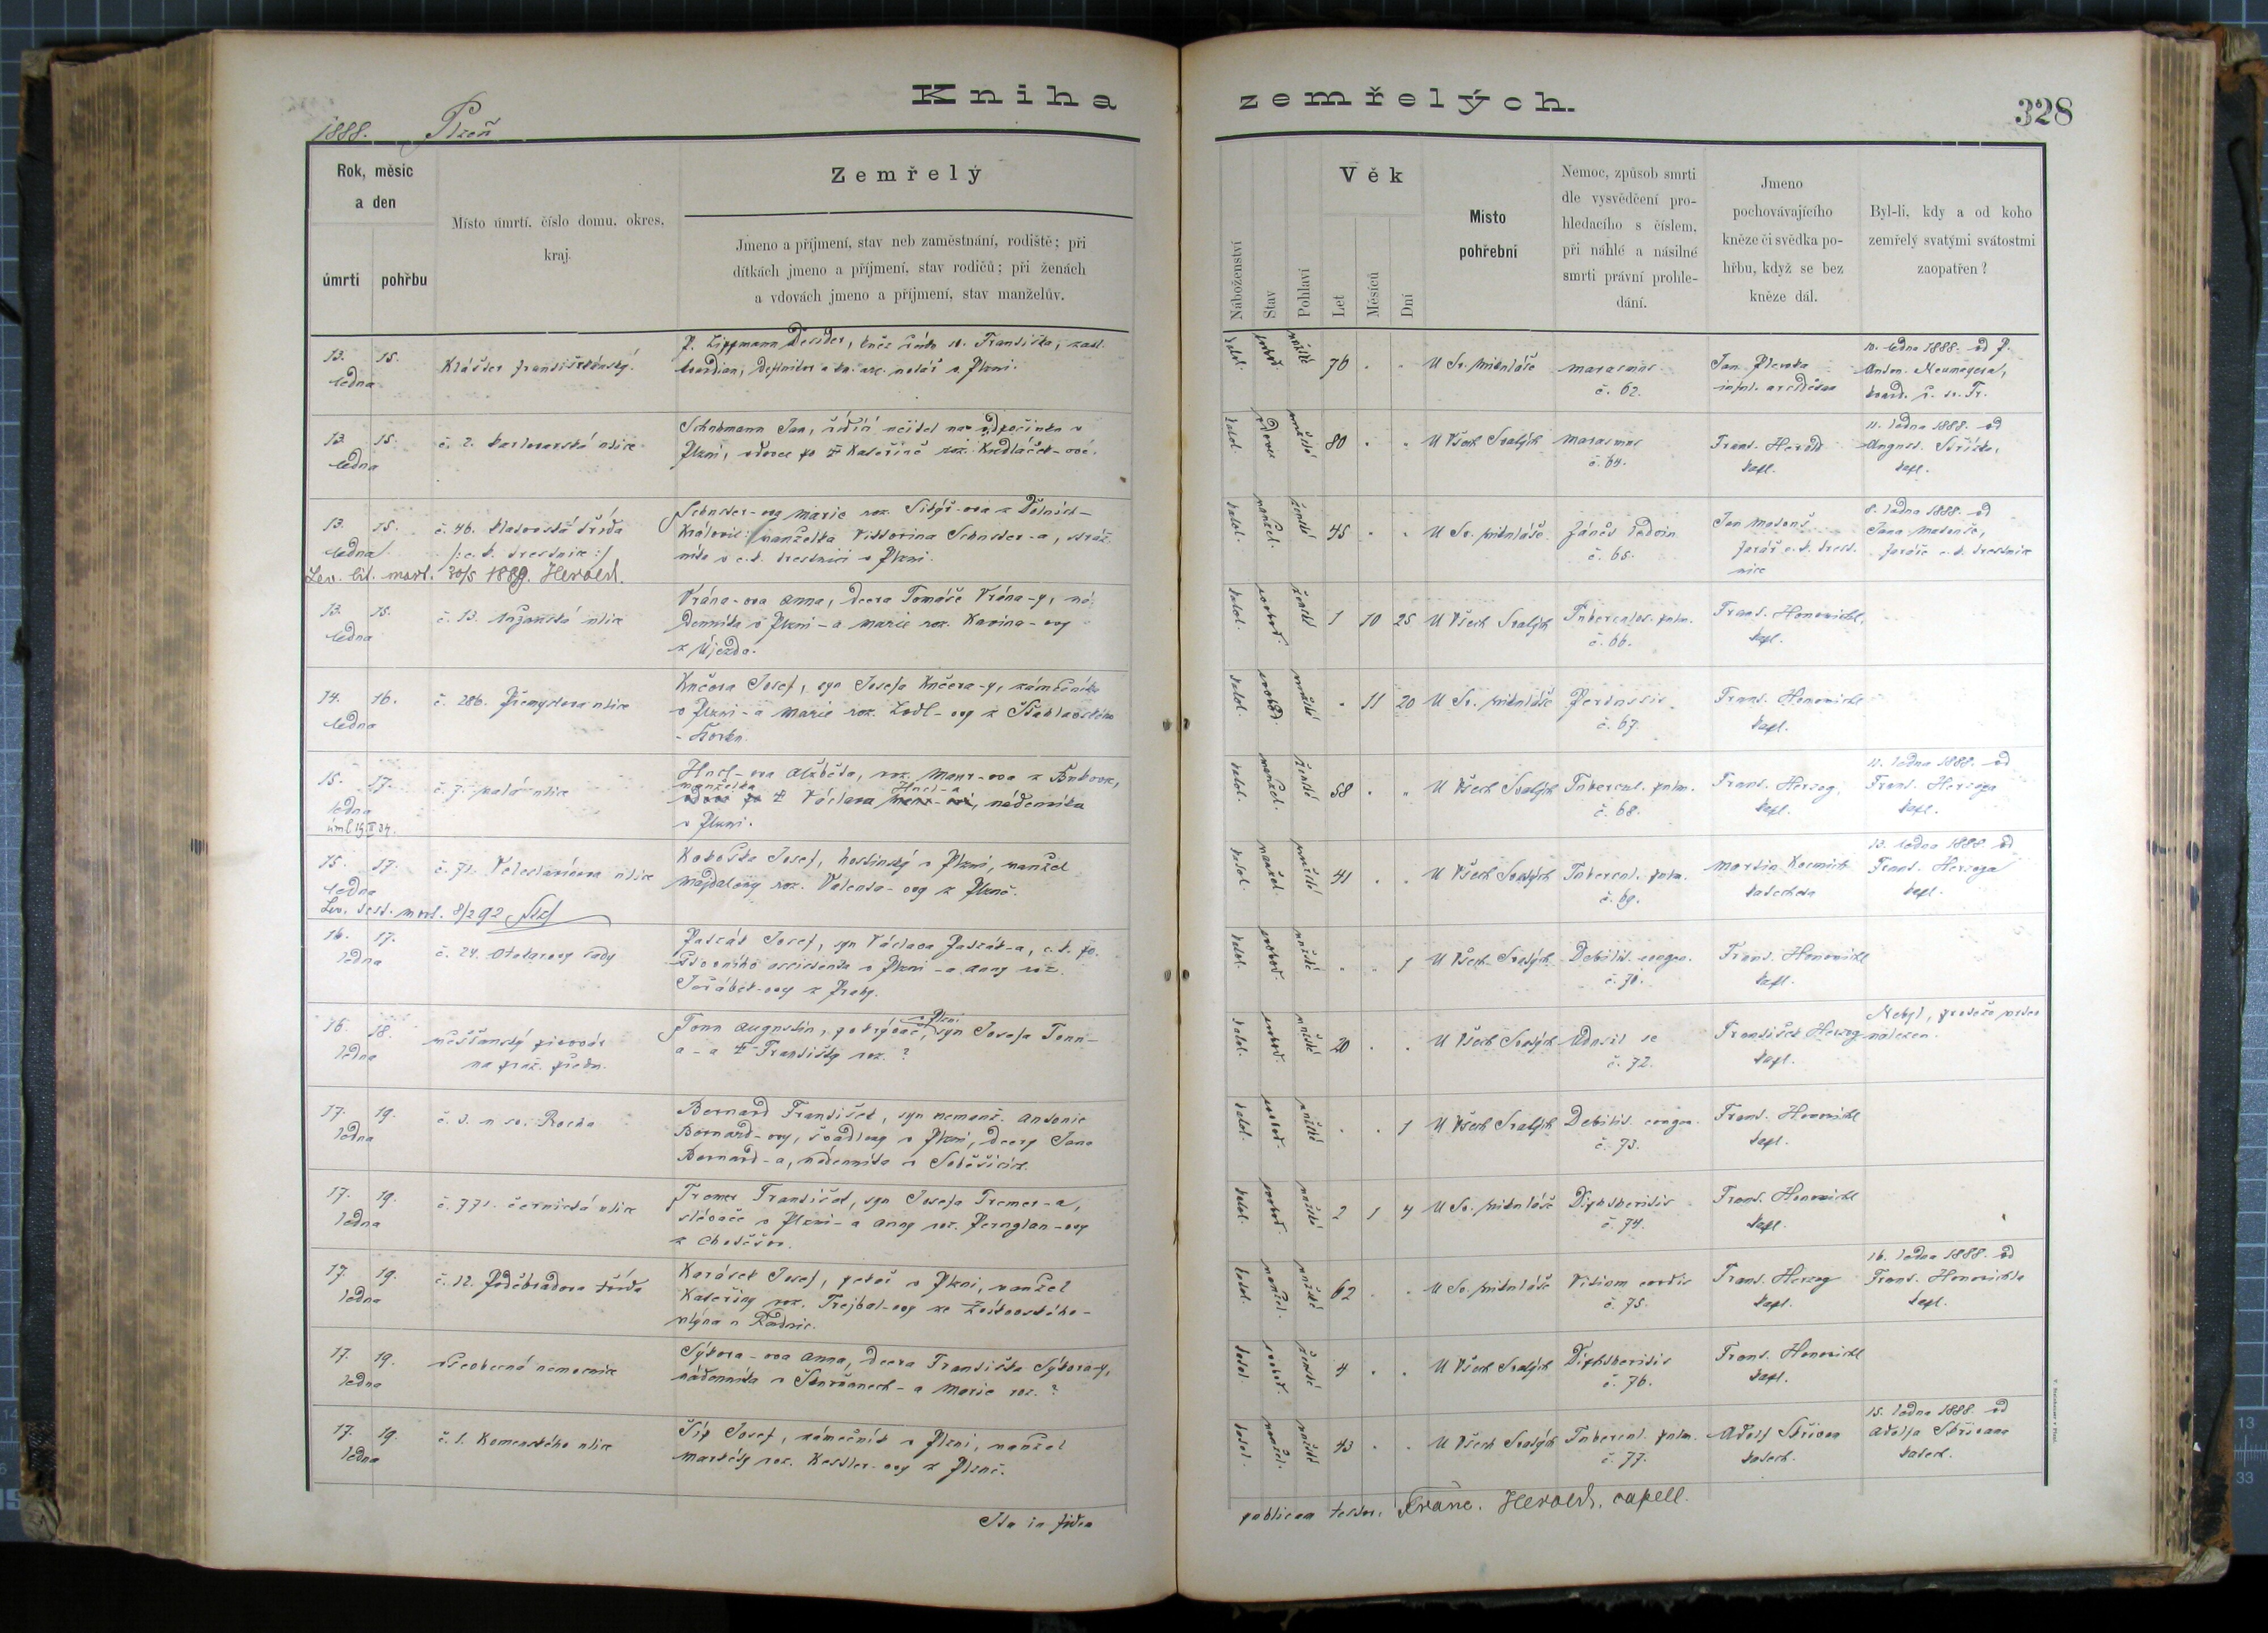 Kniha zemřelých.
328
1888. Plzeň
Rok, měsíc a den
úmrtí
pohřbu
Místo úmrtí, číslo domu, okres, kraj.
Zemřelý
Jmeno a příjmení, stav neb zaměstnání, rodiště; při
dítkách jmeno a příjmení, stav rodičů; při ženách
a vdovách jmeno a příjmení, stav manželův.
Náboženství
Stav
Pohlaví
Věk
Let
Měsíců
Dní
Místo
pohřební
Nemoc, způsob smrti
dle vysvědčení pro-
hledacího s číslem,
při náhlé a násilné
smrti právní prohle-
dání.
Jmeno
pochovávajícího
kněze či svědka po-
hřbu, když se bez
kněze dál.
Byl-li, kdy a od koho
zemřelý svatými svátostmi
zaopatřen?
13. 15.
ledna
Klášter františkánský.
P. Lippmann Desider, kněz řádu sv. Františka,
definitor notář v Plzni.
katol. 76 . . U Sv. Mikuláše
marasmus
č. 62.
10. ledna 1888. od P.
Anton. Neumayera,
13. 15.
ledna
č. 2. karlovarská ulice
Schubmann Jan, řídící učitel na odpočinku v
Plzni, vdovec po † Kateřině roz. Kudláček-ové.
katol. vdovec mužské 80 . . U Všech Svatých
marasmus
č. 64.
Frant. Herold
kapl.
11. ledna 1888. od
August. Střížka,
kapl.
13. 15.
ledna
č. 46. klatovská třída
/: c. k. trestnice :/
Schuster-ova Marie roz.
Královic manželka Viktorina Schuster-a,
v c. k. trestnici v Plzni.
katol. manžel. ženské 45 . . U Sv. Mikuláše
Zánět ledvin
č. 65.
Jan Matouš
farář c. k. trest-
nice
8. ledna 1888. od
Jana Matouše,
faráře c. k. trestnice
Lev. lit. mort. 30/5 1889. Herold.
13. 15.
ledna
č. 13. ulice
Vrána-ova Anna, dcera Tomáše Vrána-y, ná-
denníka v Plzni - a Marie roz. Kavina-ovy
z Újezda.
katol. svobod. ženské 1 10 25 U Všech Svatých
Tuberculos. pulm.
č. 66.
Frant. Honowichl.
kapl.
14. 16.
ledna
č. 286. Přemyslova ulice
Kučera Josef, syn Josefa Kučera-y, zámečníka
v Plzni - a Marie roz.
katol. svobod. mužské . 11 20 U Sv. Mikuláše
Pertussis
č. 67.
Frant. Honowichl
kapl.
15. 17.
ledna
č. 7. malá ulice
Hucl-ova Alžběta, roz. Manr-ova z Bukovce,
manželka Hucl-a
Václava nádenníka
v Plzni.
katol. manžel. ženské 58 . . U Všech Svatých
Tubercul. pulm.
č. 68.
Frant. Herzog,
kapl.
11. ledna 1888. od
Frant. Herzoga
kapl.
15. 17.
ledna
č. 71. Veleslavínova ulice
Koboška Josef, hostinský v Plzni, manžel
Majdaleny roz. Valenta-ovy z Plzně.
katol. manžel. mužské 41 . . U Všech Svatých
Tubercul. pulm.
č. 69.
Martin
katecheta
13. ledna 1888. od
Frant. Herzoga
kapl.
Lev. test. mort. 8/2 92
16. 17.
ledna
č. 24. Otakarovy sady
Paszák Josef, syn Václava Paszák-a, c. k. po-
štovního assistenta v Plzni - a Anny roz.
Jeřábek-ovy z Prahy.
katol. svobod. mužské . . 1 U Všech Svatých
Debilit. congen.
č. 70.
Frant. Honowichl
kapl.
16. 18.
ledna
měšťanský pivovár
na praž. předm.
Tonn Augustin, pokrývač, v Plzni syn Josefa Tonn-
a - a † Františky roz. ?
katol. svobod. mužské 20 . . U Všech Svatých
Udusil se
č. 72.
František Herzog
kapl.
Nebyl, protože mrtev
nalezen.
17. 19.
ledna
č. 3. u sv. Rocha
Bernard František, syn nemanž. Antonie
Bernard-ovy, švadleny v Plzni, dcery Jana
Bernard-a, nádenníka v Soběšicích.
katol. svobod. mužské . . 1 U Všech Svatých
Debilit. congen.
č. 73.
Frant. Honowichl
kapl.
17. 19.
ledna
č. 771. černická ulice
Tremer František, syn Josefa Tremer-a,
slévače v Plzni - a Anny roz. Pernglau-ovy
z Chotěšov.
katol. svobod. mužské 2 1 4 U Sv. Mikuláše
Diphtheritis
č. 74.
Frant. Honowichl
kapl.
17. 19.
ledna
č. 12. Poděbradova třída
Karásek Josef, pekař v Plzni, manžel
Kateřiny roz. Trejbal-ovy ze
mlýna u Radnic.
katol. manžel. mužské 62 . . U Sv. Mikuláše
Vitium cordis
č. 75.
Frant. Herzog
kapl.
16. ledna 1888. od
Frant. Honowichla
kapl.
17. 19.
ledna
všeobecná nemocnice
Sýkora-ova Anna, dcera Františka Sýkora-y,
nádenníka v Skurňanech - a Marie roz. ?
katol. svobod. ženské 4 . . U Všech Svatých
Diphtheritis
č. 76.
Frant. Honowichl
kapl.
17. 19.
ledna
č. 1. Komenského ulice
Šíp Josef, zámečník v Plzni, manžel
Markéty roz. Kessler-ovy z Plzně.
katol. manžel. mužské 43 . . U Všech Svatých
Tubercul. pulm.
č. 77.
Adolf Skřivan
katech.
15. ledna 1888. od
Adolfa Skřivana
katech.
Ita in fidem publicam testor. Franc. Herold, capell.